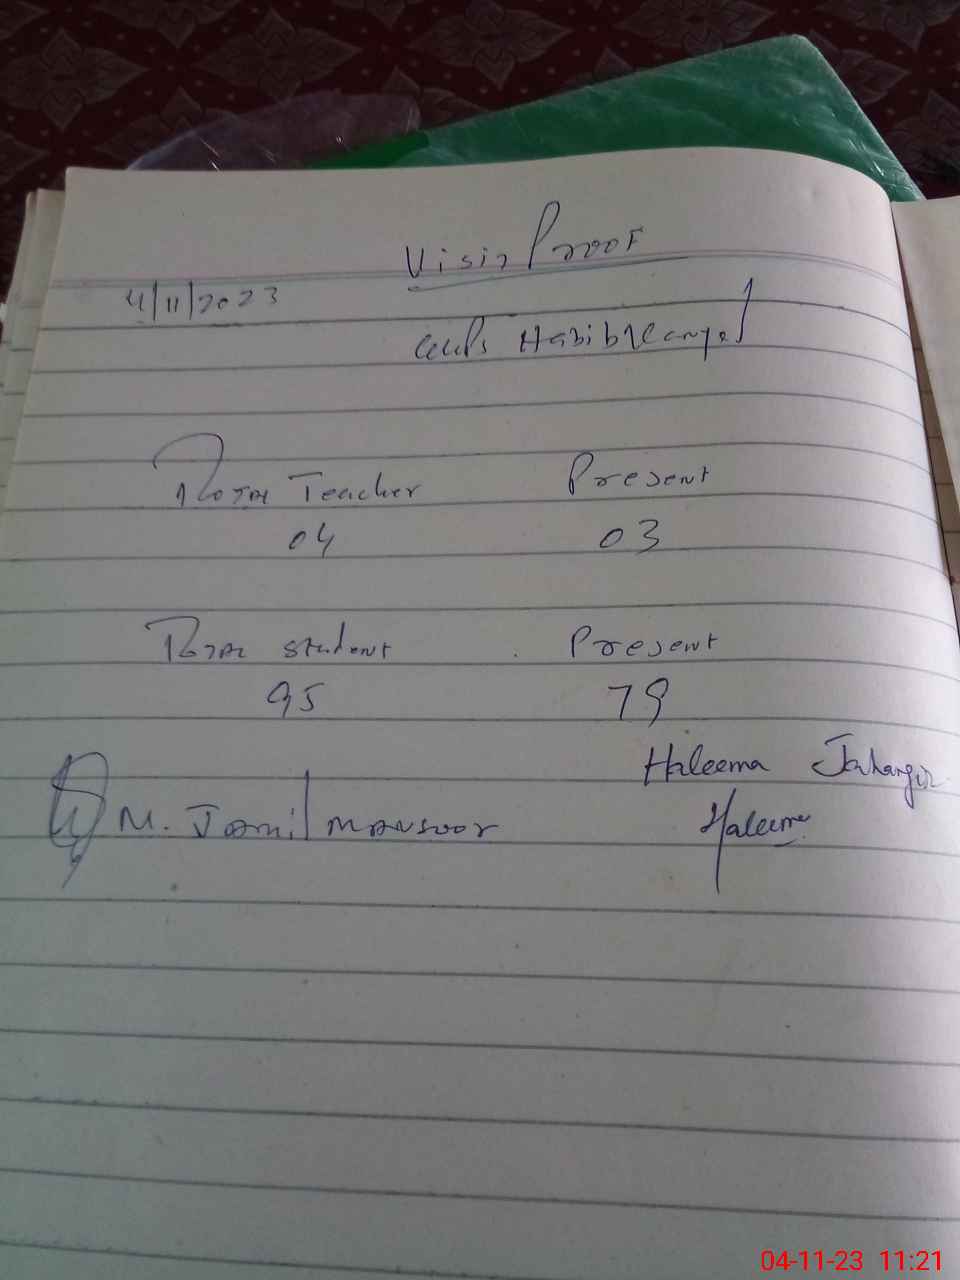 Visit Proof
4/11/2023
GGPS Habib Kanya
Total Teacher Present
04 03
Total Student Present
95 79
Haleema Jahangir
M. Jamil Mansoor Haleema
04-11-23 11:21